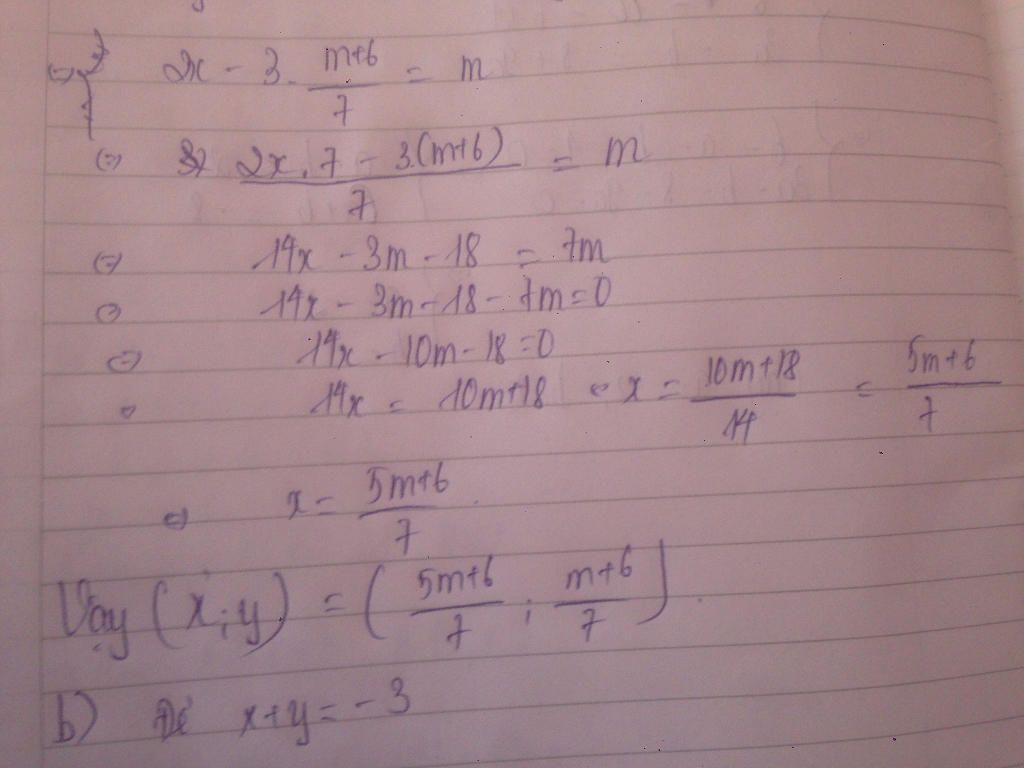 ⇔ { 2x - 3. \frac{m+6}{7} = m
⇔ \frac{2x.7 - 3.(m+6)}{7} = m
⇔ 14x - 3m - 18 = 7m
⇔ 14x - 3m - 18 - 7m = 0
⇔ 14x - 10m - 18 = 0
⇔ 14x = 10m+18 ⇔ x = \frac{10m+18}{14} = \frac{5m+6}{7}
⇔ x = \frac{5m+6}{7}
Vậy (x;y) = ( \frac{5m+6}{7} ; \frac{m+6}{7} ).
b) Để x+y = -3